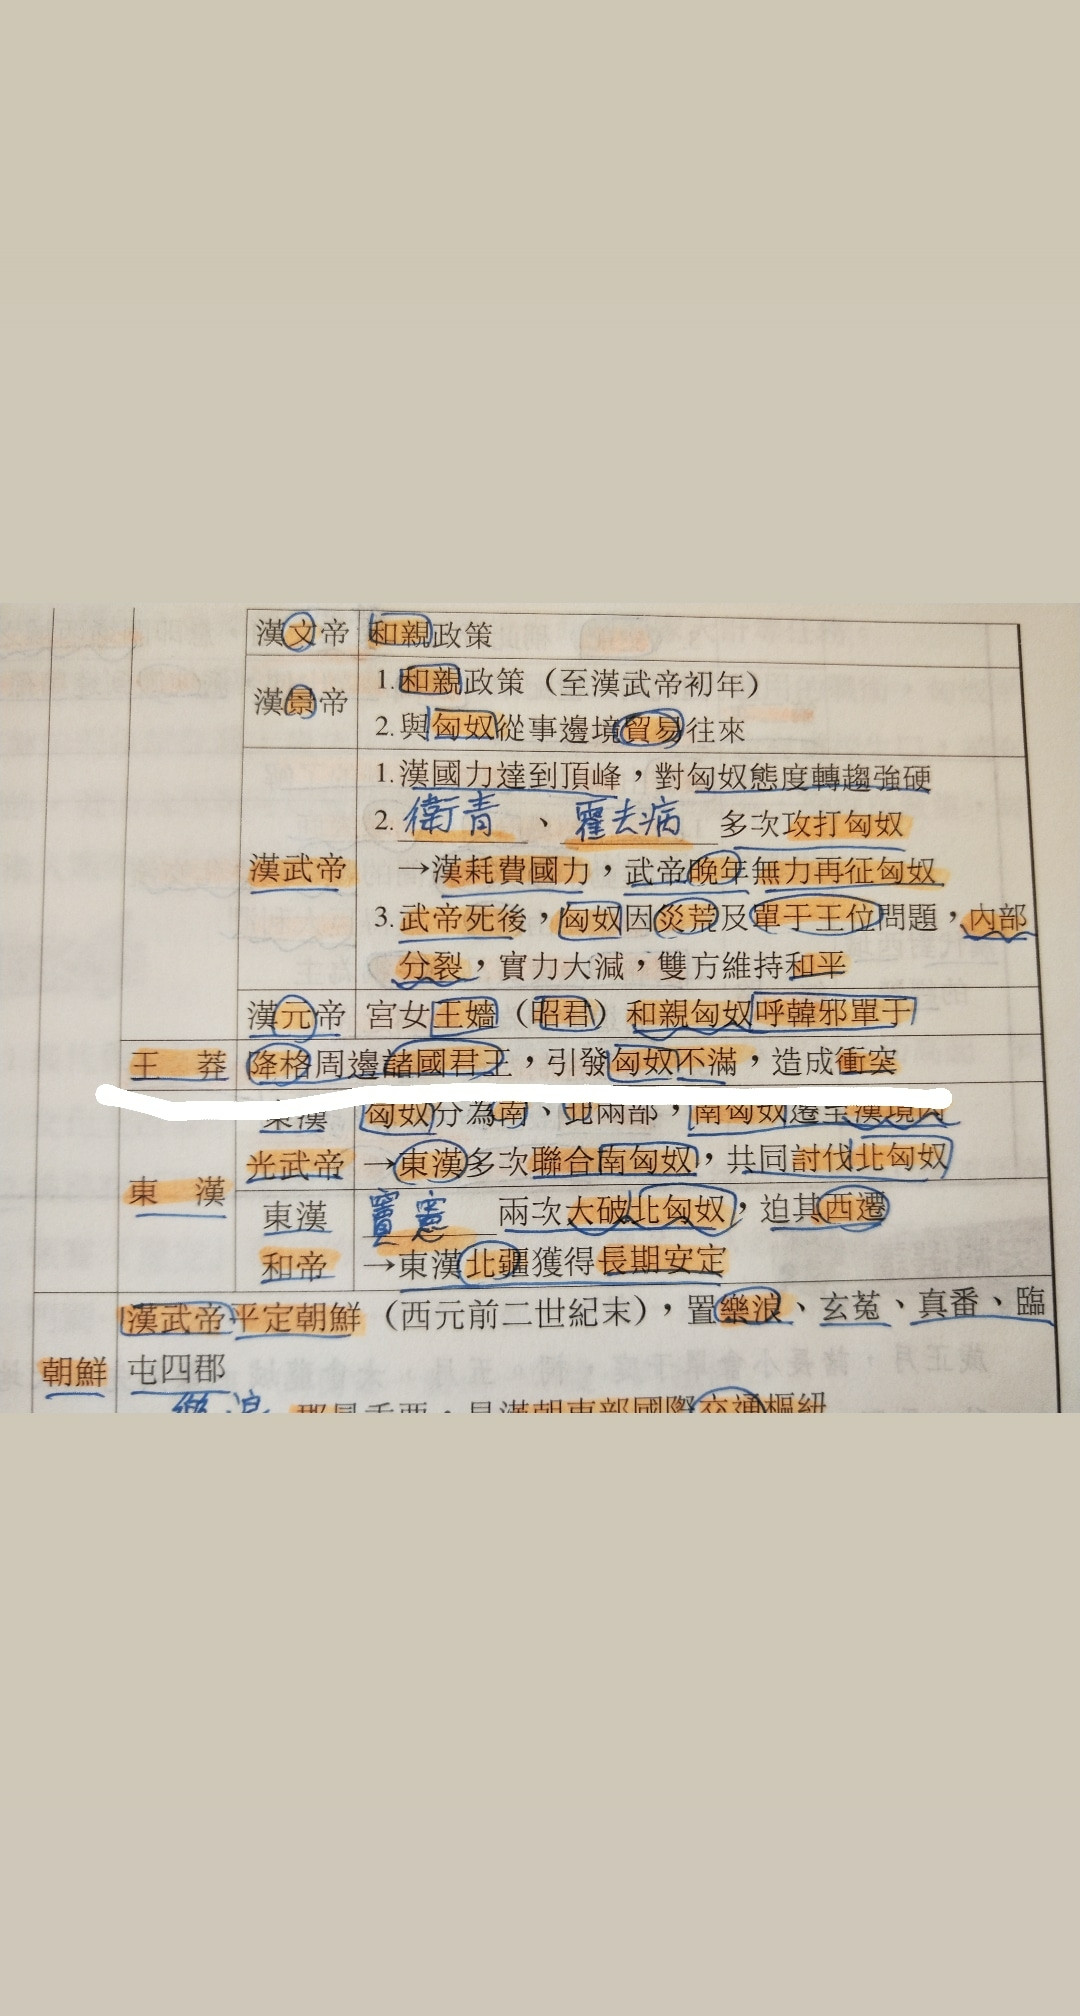 漢文帝 和親政策
漢景帝 1.和親政策（至漢武帝初年）
2.與匈奴從事邊境貿易往來
1.漢國力達到頂峰，對匈奴態度轉趨強硬
2.衛青、霍去病 多次攻打匈奴
漢武帝 →漢耗費國力，武帝晚年無力再征匈奴
3.武帝死後，匈奴因災荒及單于王位問題，內部
分裂，實力大減，雙方維持和平
漢元帝 宮女王嬙（昭君）和親匈奴呼韓邪單于
王莽 降格周邊諸國君王，引發匈奴不滿，造成衝突
東漢 匈奴分為南、北兩部，南匈奴遷至漢境內
光武帝 →東漢多次聯合南匈奴，共同討伐北匈奴
東漢
東漢 竇憲 兩次大破北匈奴，迫其西遷
和帝 →東漢北疆獲得長期安定
漢武帝平定朝鮮（西元前二世紀末），置樂浪、玄菟、真番、臨
朝鮮 屯四郡
樂浪 郡最重要，是漢朝東部國際交通樞紐